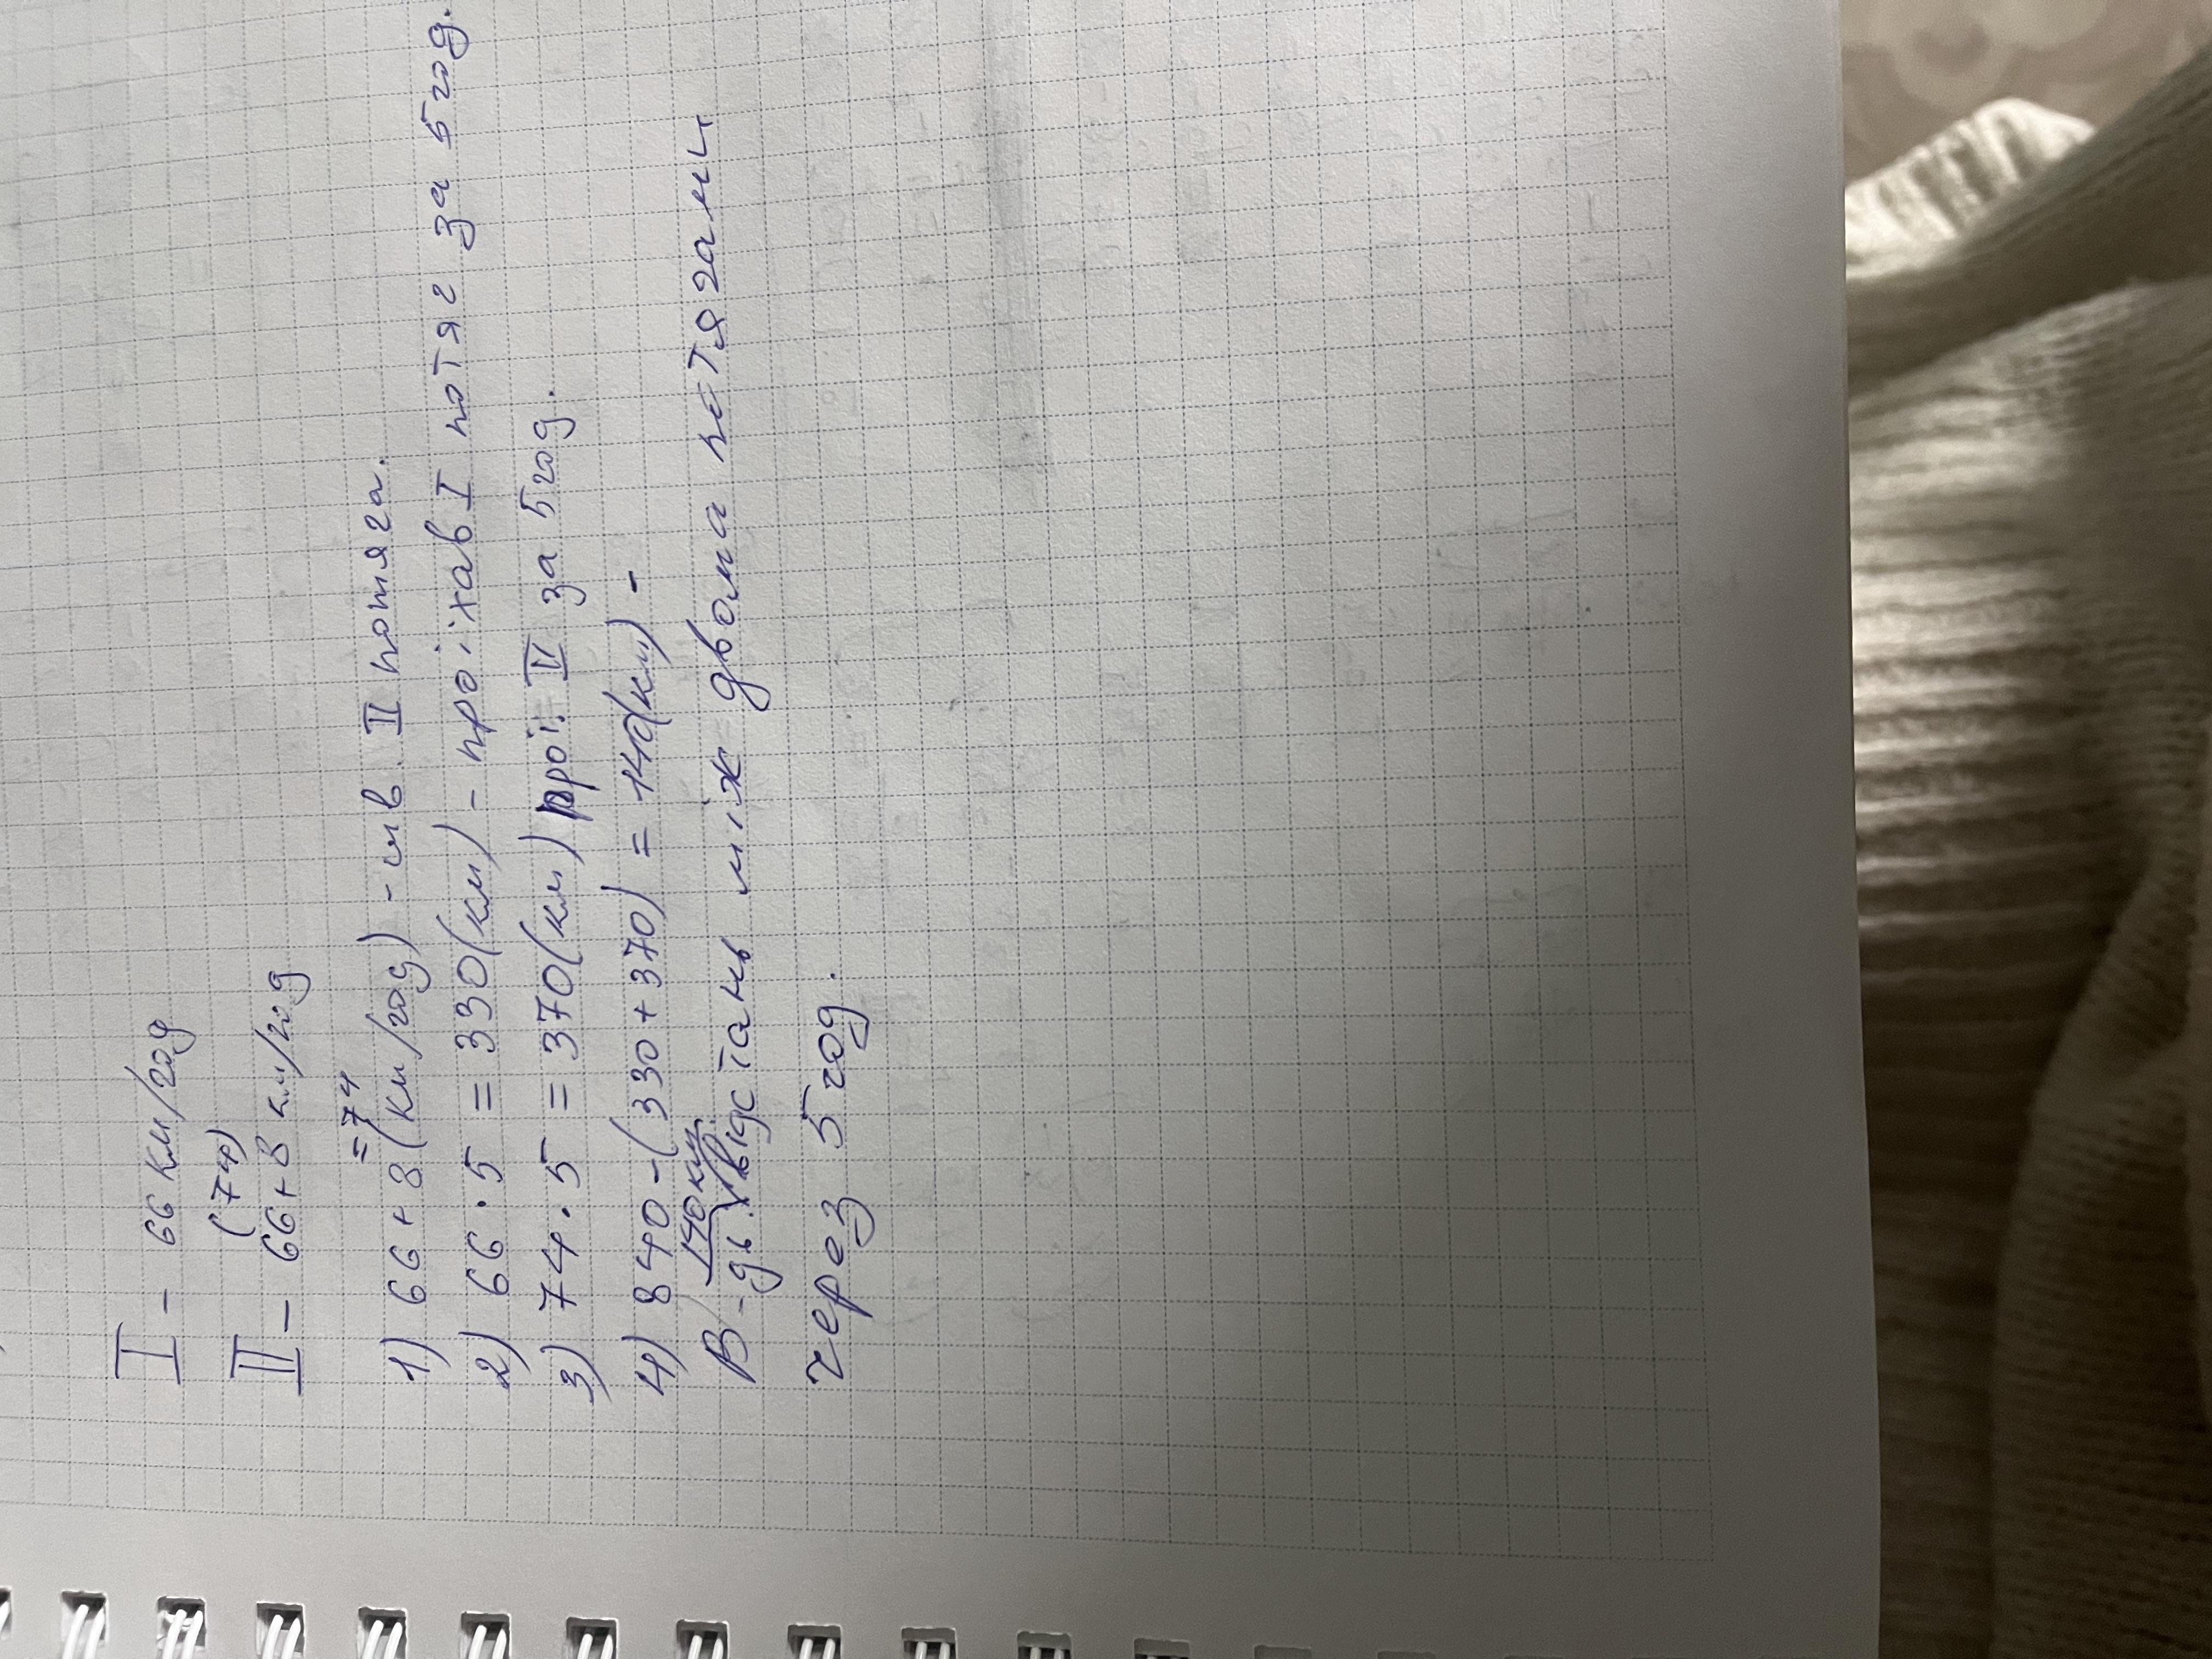 I - 66 км/год
(74)
II - 66+8 км/год
=74
1) 66+8 (км/год) - шв. II потяга.
2) 66·5 = 330(км) - проїхав I потяг за 5 год.
3) 74·5 = 370(км) прої. II за 5 год.
4) 840-(330+370) = 140(км) -
140 км
В-дь: відстань між двома потягами
через 5 год.